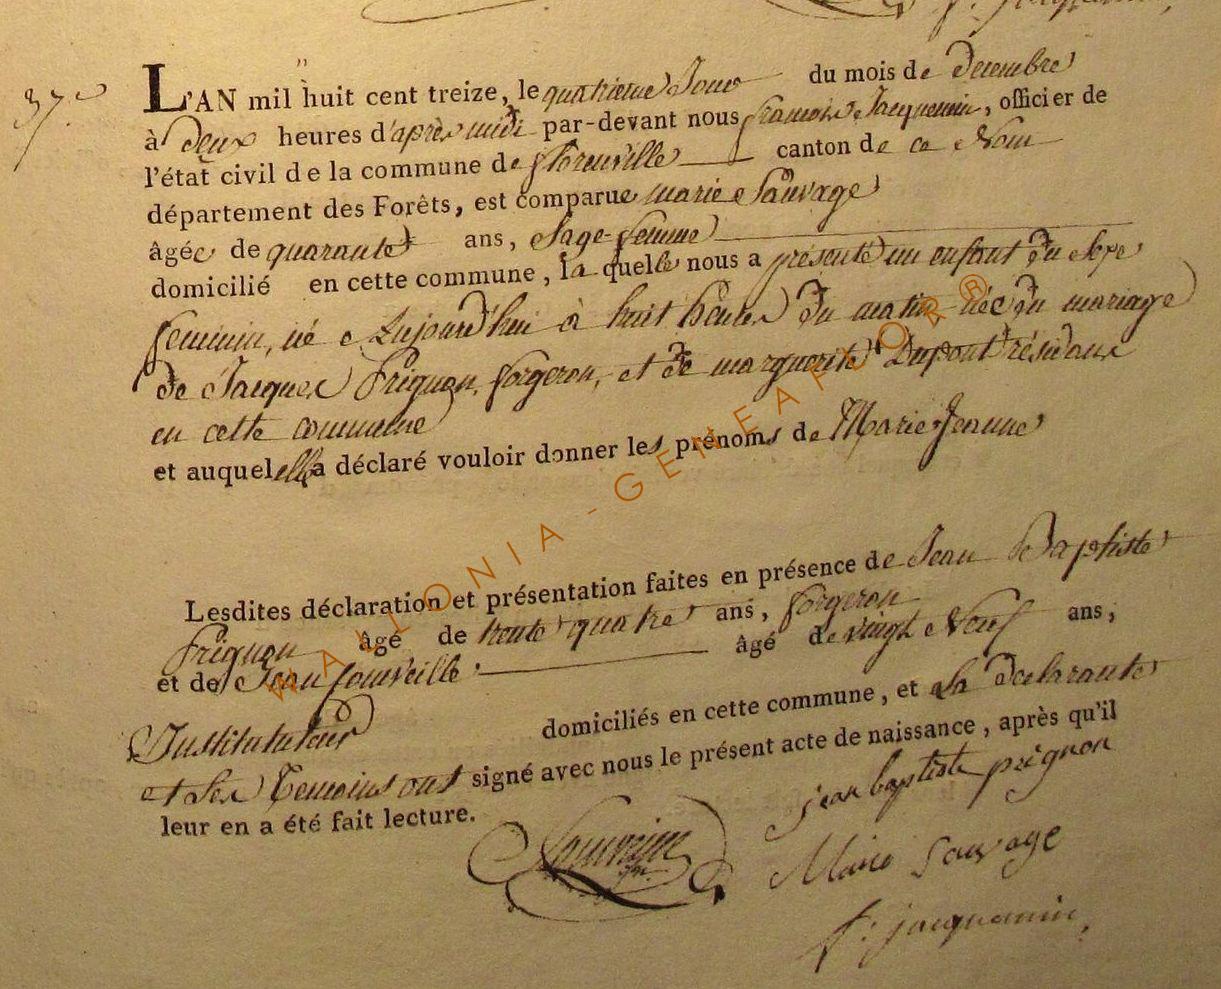 37.e
L'AN mil huit cent treize, le quatrieme Jour du mois de decembre
à deux heures d'après midi par-devant nous francois Jacquemin, officier de
l'état civil de la commune de florenville canton de ce Nom
département des Forêts, est comparue marie Sauvage
âgée de quarante ans, Sage-femme
domicilié en cette commune, la quelle nous a présenté un enfant du Sexe
feminin, né aujourd'hui à huit heures du matin née du mariage
de Jacques Prignon, forgeron, et de marguerite Dupont résidans
en cette commune
et auquel elle a déclaré vouloir donner les prénoms de Marie-Jeanne
Lesdites déclaration et présentation faites en présence de Jean Baptiste
Prignon âgé de trente quatre ans, forgeron
et de Jean âgé de vingt Neuf ans,
Instituteur domiciliés en cette commune, et La declarante
et les Temoins ont signé avec nous le présent acte de naissance, après qu'il
leur en a été fait lecture.
jean baptiste prignon
Marie Sauvage
f: jacquemin,
WALLONIA-GENEAPHOR®